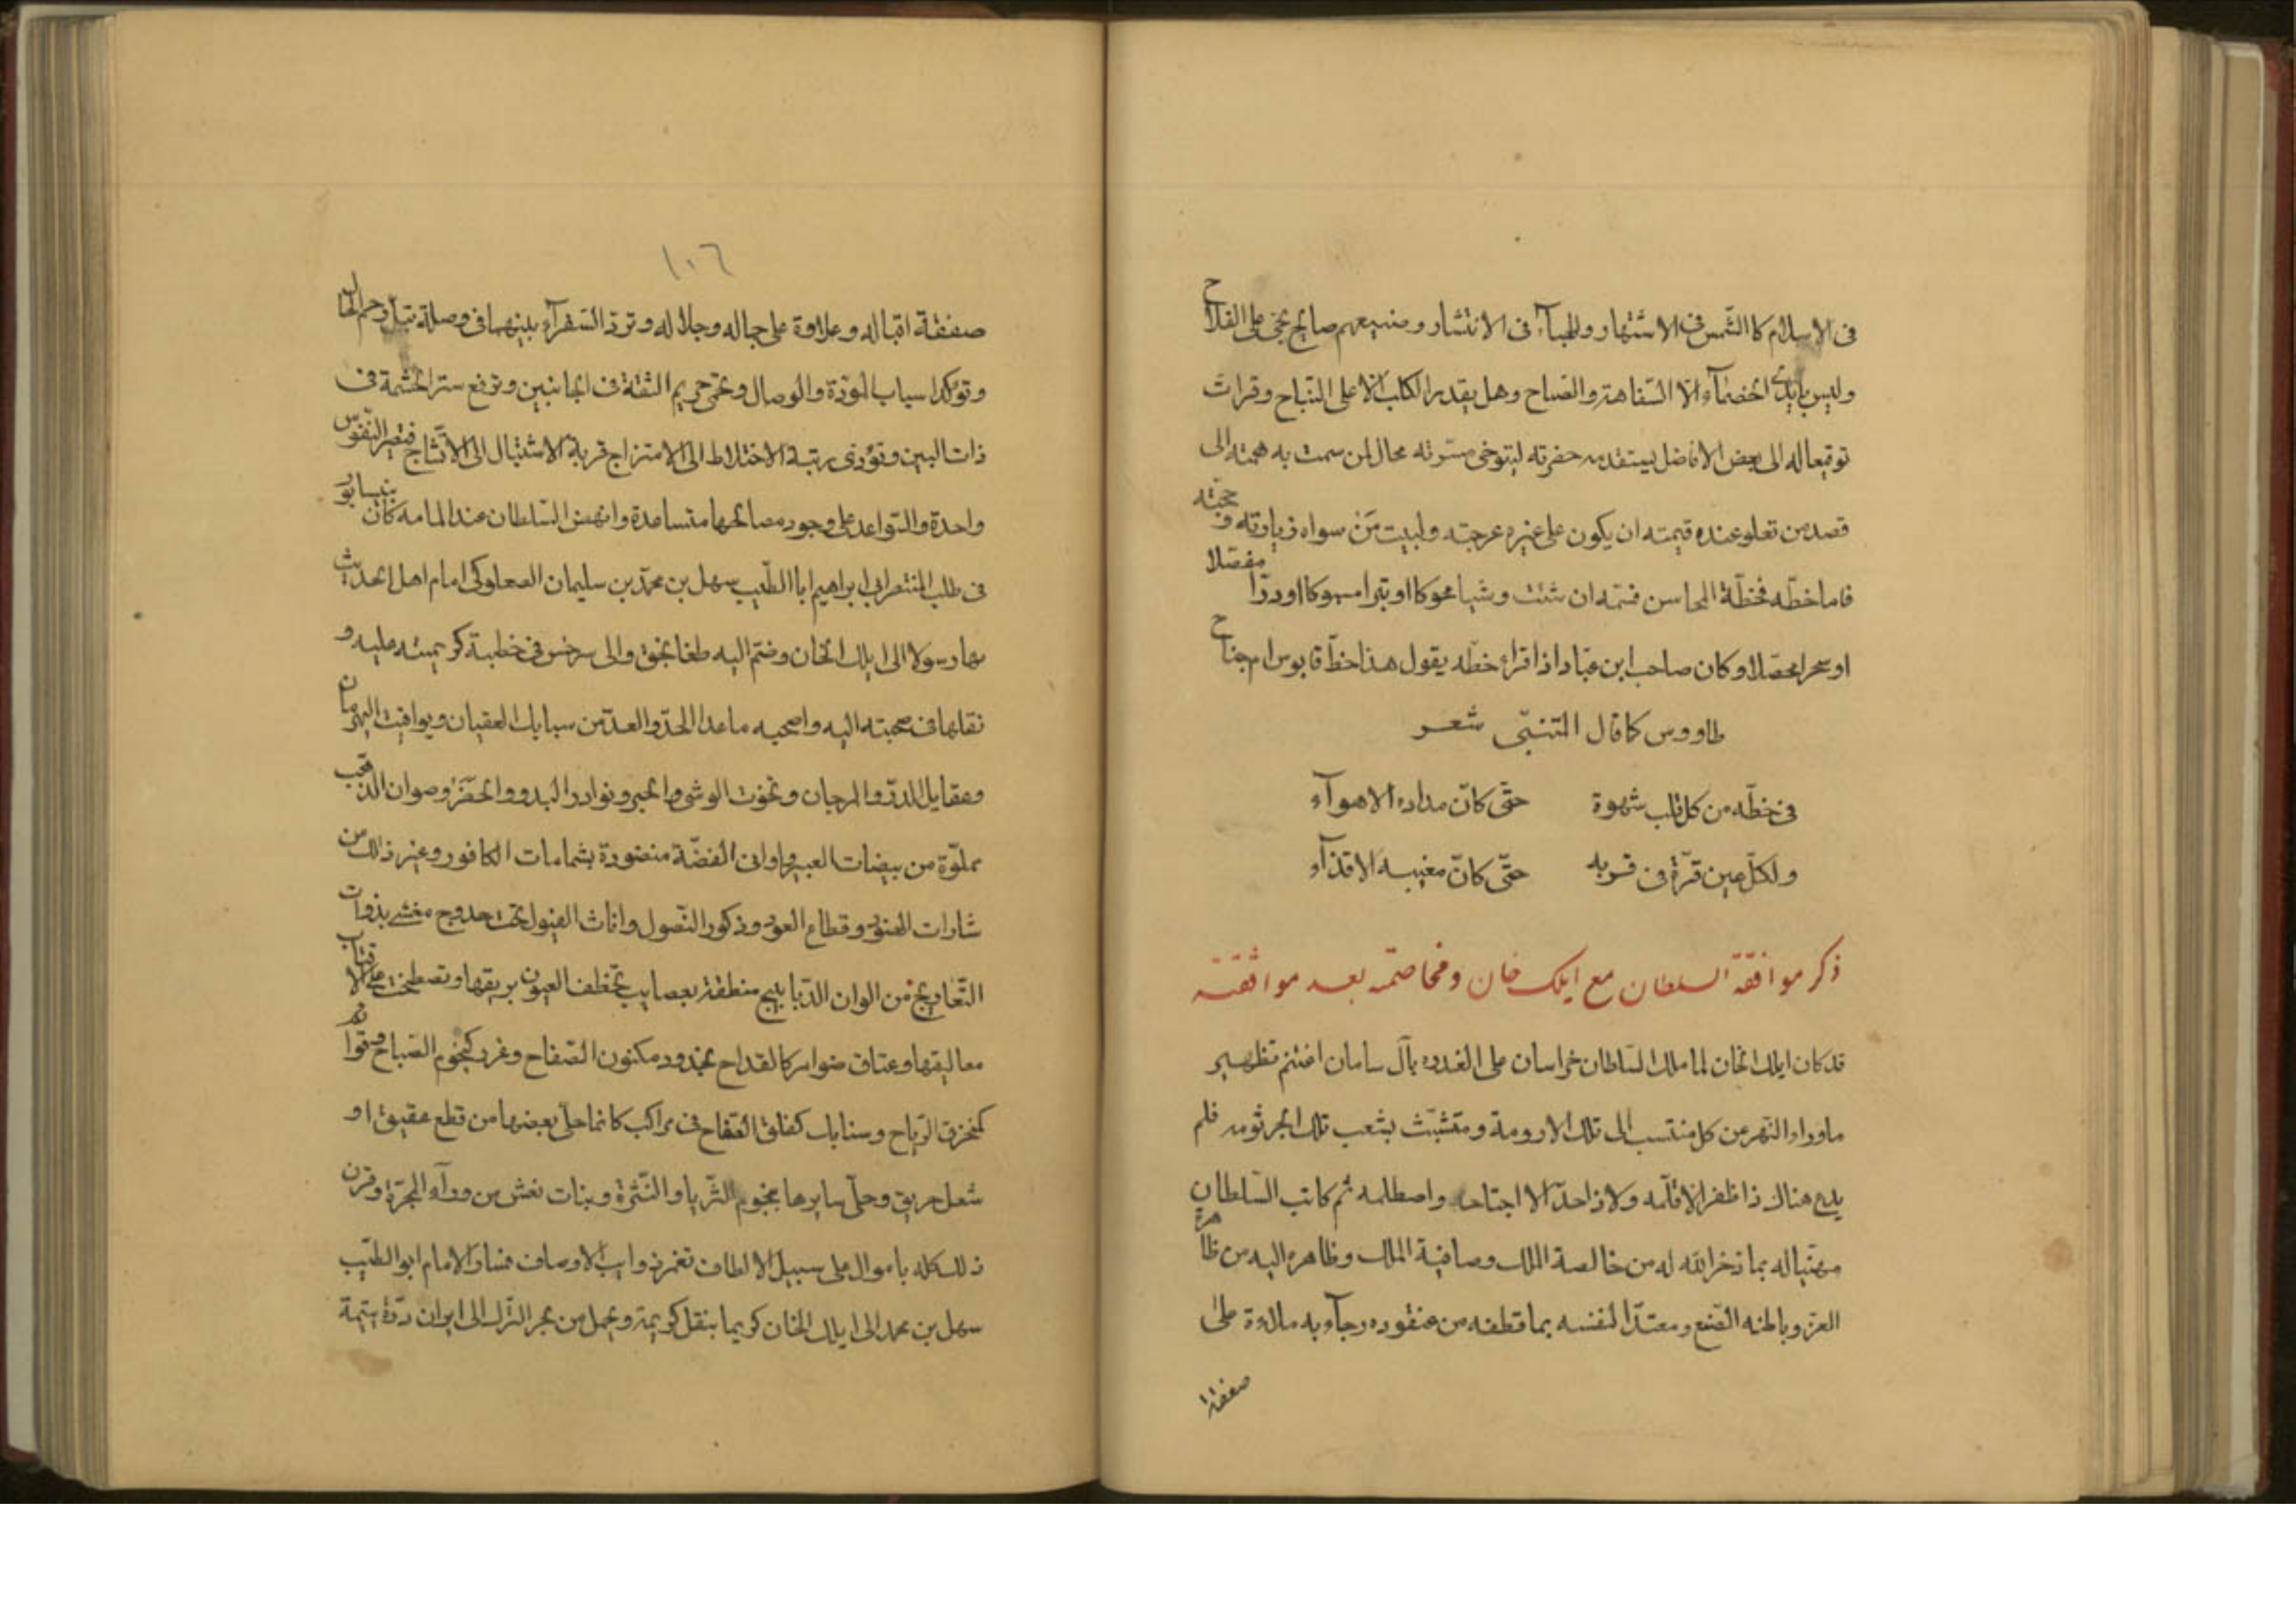 فى الاسلام كالشمس فى الاشتهار والهباء فى الانتشار وصنيعهم صايح بحى على الفلاح
وليس بايدى الخصماء الا السفاهة والصياح وهل يقدر الكلب الا على النباح وقرات
توقيعا له الى بعض الافاضل يستقدمه حضرته ليتوخى مسرته محال لمن سمت به همته الى
قصد من تعلو عنده قيمته ان يكون على غيره عرجته ولبيت من سواه زيارته وحجته
فاما خطه فخطة المحاسن فسمه ان شئت وشيا محوكا او تبرا مسبوكا او درا مفصلا
او سحرا محصلا وكان صاحب ابن عباد اذا قراء خطه يقول هذا خط قابوس ام جناح
طاووس كما قال المتنبى شعر
فى خطه من كل قلب شهوة حتى كان مداده الاهواء
ولكل عين قرة فى قربه حتى كان مغيبه الاقذاء
ذكر موافقة السلطان مع ايلك خان ومخاصمته بعد موافقته
قد كان ايلك الخان لما ملك السلطان خراسان على الغدرة بآل سامان اغتنم تطهير
ماوراء النهر من كل منتسب الى تلك الارومة ومتشبث بشعب تلك الجرثومه فلم
يدع هناك ذا ظفر الا قلمه ولا ذا حد الا اجتاحه واصطلمه ثم كاتب السلطان
مهنيا له بما ذخر الله له من خالصة الملك وصافية الملك وظاهره اليه من ظاهرة
العز وباطنه الصنع ومعتدا لنفسه بما قطفه من عنقوده رجاء به مالاوة على
صفقة
١٠٦
صفقة اقباله وعلاوة على جماله وجلاله وتردد السفراء بينهما فى وصلة تبل رحم الحال
وتوكد اسباب المودة والوصال وتحمى حريم الثقة فى الجانبين وترفع ستر الحشمة فى
ذات البين وتؤدى رتبة الاختلاط الى الامتزاج قربة الاشتبال الى الاتشاج فتصير النفوس
واحدة والتواعد على وجود مصالحها متساعدة وانهض السلطان عند المامه كان بنيسابور
فى طلب المنتصر ابى ابراهيم ابا الطيب سهل بن محمد بن سليمان الصعلوكى امام اهل الحديث
بها رسولا الى ايلك الخان وضم اليه طغانجق والى سرخس فى خطبة كريمته عليه و
نقلها فى صحبته اليه واصحبه ما عدا الحد والعد من سبايك العقيان ويواقيت البهرمان
وعقايل الدر والمرجان وتخوت الوشى والحبر ونوادر البدو والحضر وصوان الذهب
مملوة من بيضات العبير واوانى الفضة منضودة بشمامات الكافور وغير ذلك من
شارات الهنود وقطاع العود وذكور النصول واناث الفيول تحت حدوج مغشى بذوات
التعاويج من الوان الديابيج منطقة بعصايب تخطف العيون بريقها وتصطخب على الاقتاب
معاليقها وعتاق ضوامر كالقداح بخدود مكنون الصفاح وغرر كنجوم الصباح وقوائم
كمنخرق الرياح وسنابك كفلق الصفاح فى مراكب كانما حلى بعضها من قطع عقيق او
شعل حريق وحلى سايرها بنجوم الثريا والنثرة وبنات نعش من وراء المجرة وقرن
ذلك كله باموال على سبيل الالطاف تغمر ذوايب الاوصاف فسار الامام ابو الطيب
سهل بن محمد الى ايلك الخان كريما بنقل كريمة ويحمل من بحر الترك الى ايران درة يتيمة